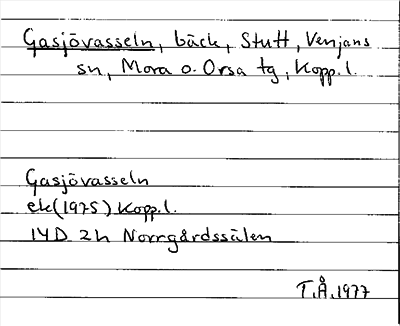 Gasjövasseln, bäck, Stutt, Venjans
sn, Mora o. Orsa tg, Kopp.l.
Gasjövasseln
ek(1975) Kopp.l.
14D 2h Norrgårdssälen
T.Å.1977